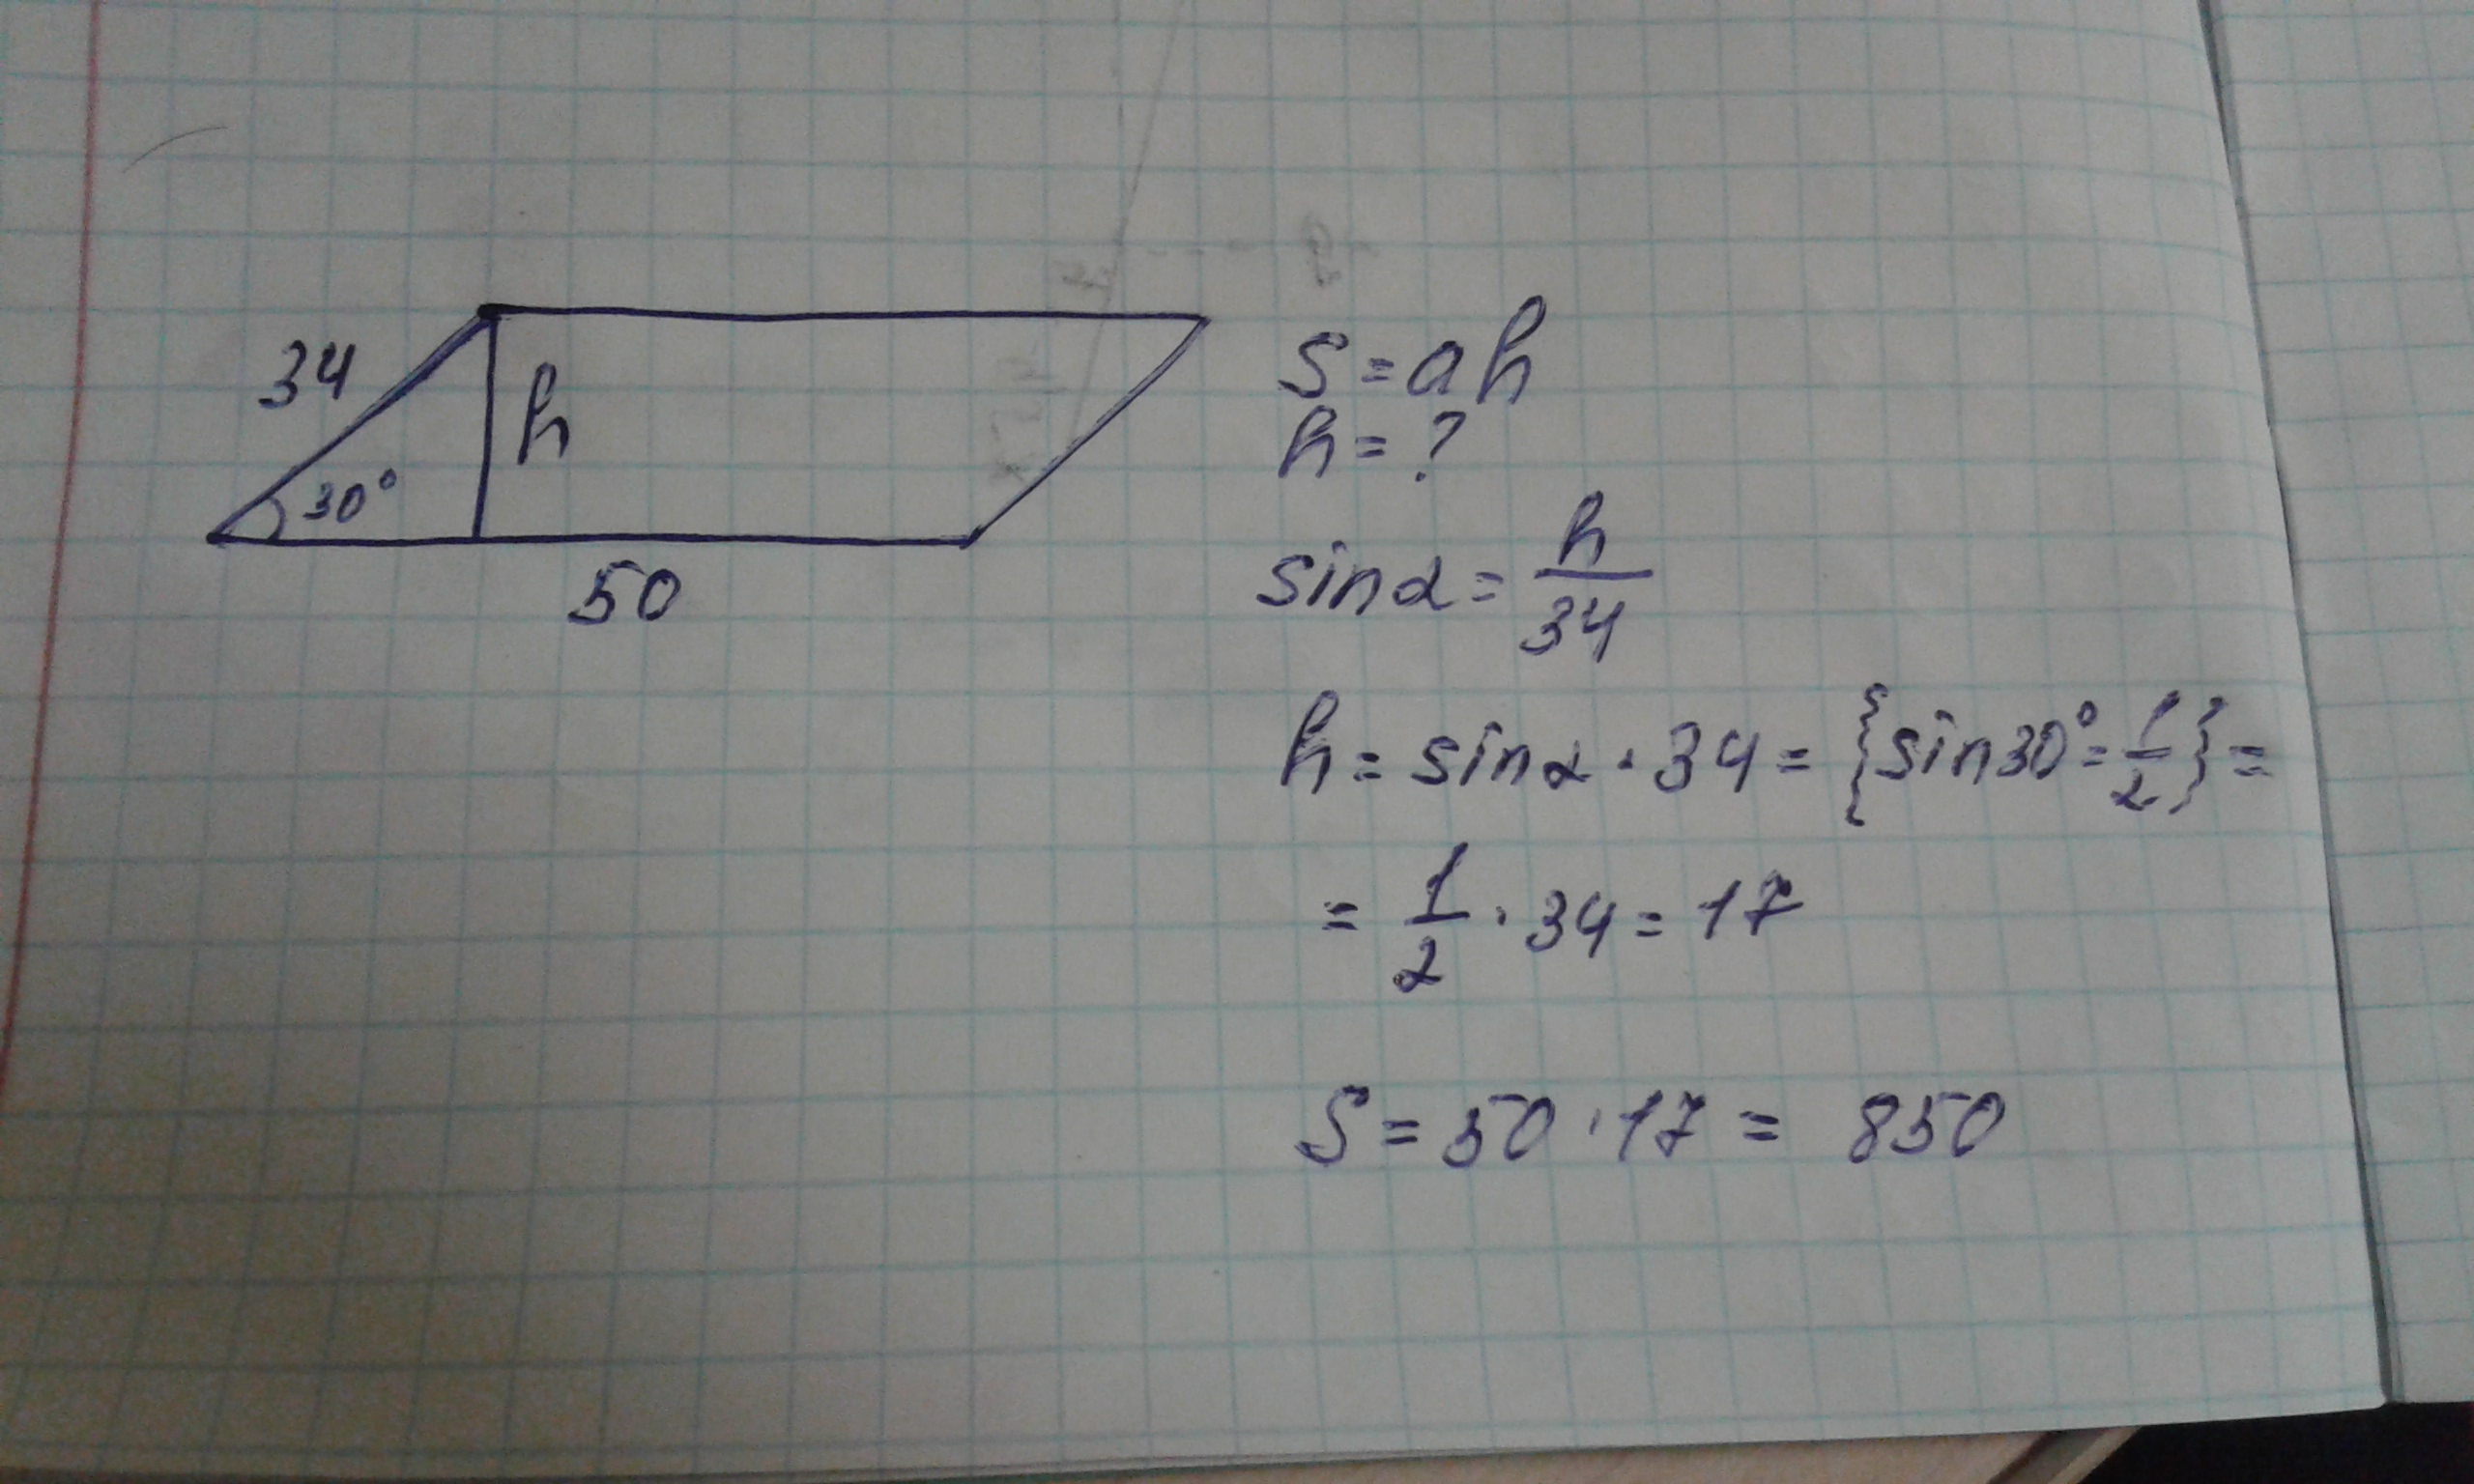 34
h
30°
50
S = ah
h = ?
sinα = h/34
h = sinα · 34 = {sin30° = 1/2} =
= 1/2 · 34 = 17
S = 50 · 17 = 850